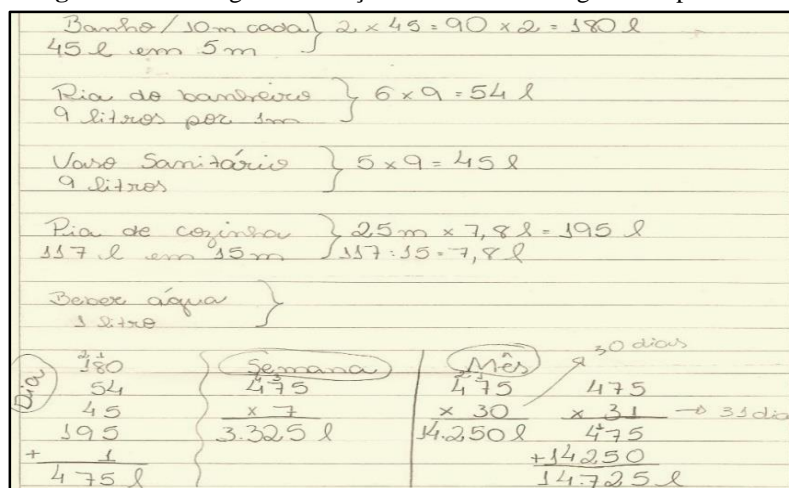 Banho / 10m cada } 2 x 45 = 90 x 2 = 180 l
45 l em 5 m
Pia do banheiro } 6 x 9 = 54 l
9 litros por 1m
Vaso Sanitário } 5 x 9 = 45 l
9 litros
Pia de cozinha } 25m x 7,8 l = 195 l
117 l em 15m 117 : 15 = 7,8 l
Beber água }
1 litro
Dia
180
54
45
195
+ 1
475 l
Semana
475
x 7
3.325 l
Mês
30 dias
475
x 30
14.250 l
475
x 31 → 31 dia
475
+14250
14.725 l